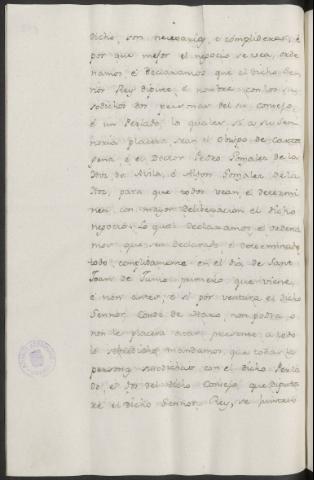 dicho, son necesarias, e complideras, é
por que mejor el negocio se vea, orde
namos, é Declaramos que el dicho Se
ñor Rey dipute, e nombre con los su
sodichos dos personas del su Consejo,
é un Perlado, lo quales si a su Señ
noria placera sean el Obispo de Carta
gena é el Doctor Pedro Gonzalez de la
de Avila, é Alfon Gonzalez de la
para que todos vean, é determi
nen con mayor deliberacion el dicho
negocio: Lo qual declaramos, é ordena
mos que sea declarado, é determinado
todo, complidamente en el dia de Sant
Joan de Junio primero, que viene,
é non antes, é si por ventura el dicho
Señor, Conde de non podra, o
non le placera estar presente a todo
lo sobredicho, mandamos, que todas las
personas susodichas con el dicho Perla
do, é dos del dicho Consejo, que diputa
ré el dicho Señor, Rey, se